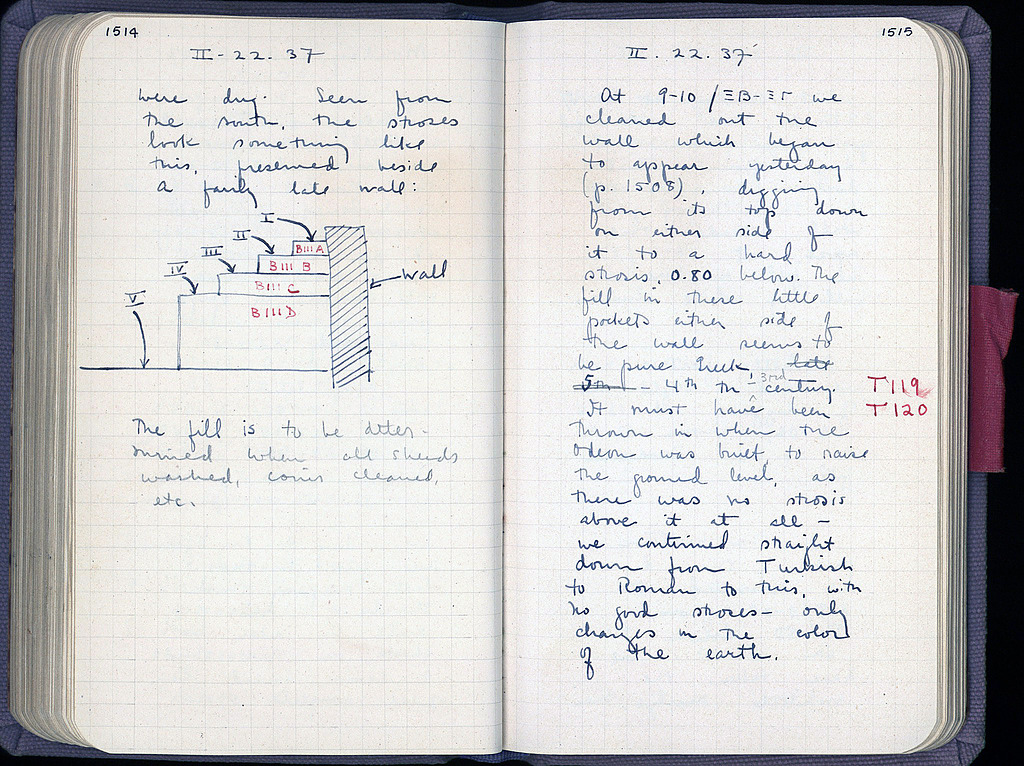 1514
II - 22. 37
were dug. Seen from
the south, the stroses
look something like
this, preserved beside
a fairly late wall:
I
II
III
IV
V
B III A
B III B
B III C
B III D
wall
The fill is to be deter-
mined when all sherds
washed, coins cleaned,
etc.
1515
II. 22. 37
At 9-10 / ΞΒ-ΞΓ we
cleaned out the
wall which began
to appear yesterday
(p. 1508), digging
from its top down
on either side of
it to a hard
strosis, 0.80 below. The
fill in these little
pockets either side of
the wall seems to
be pure Greek, late
5th - 4th to - 3rd century.
T 119
It must have been
T 120
thrown in when the
Odeon was built, to raise
the ground level, as
there was no strosis
above it at all -
we continued straight
down from Turkish
to Roman to this, with
no good stroses - only
changes in the color
of the earth.